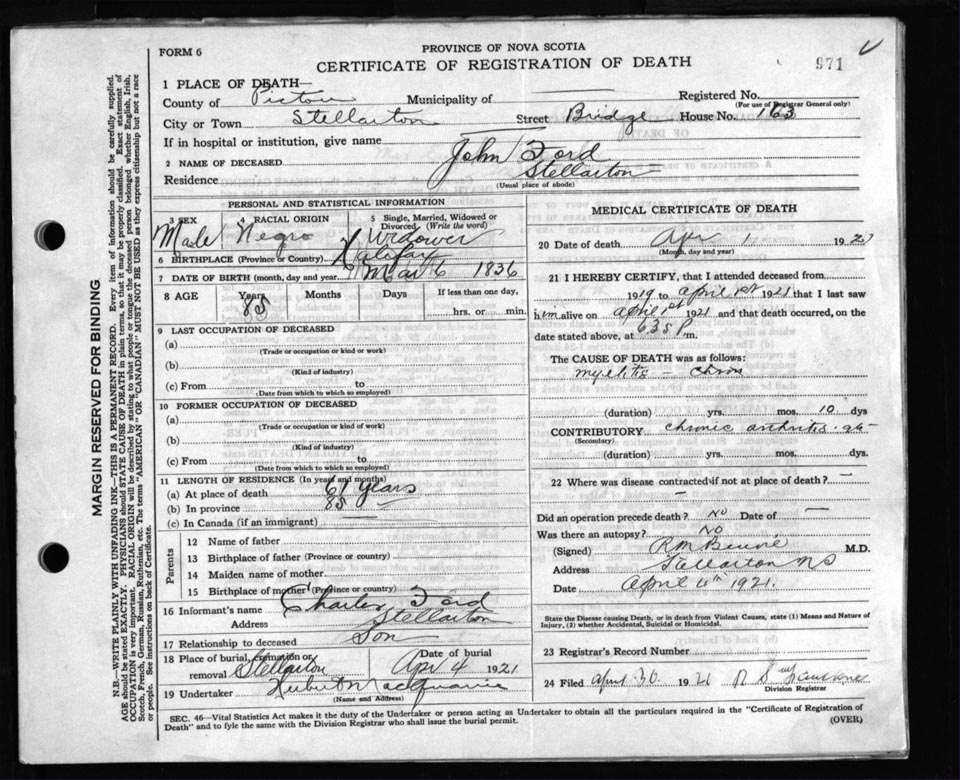 FORM 6
PROVINCE OF NOVA SCOTIA
CERTIFICATE OF REGISTRATION OF DEATH
971
1 PLACE OF DEATH—
County of Pictou Municipality of Registered No.
(For use of Registrar General only)
City or Town Stellarton Street Bridge House No. 163
If in hospital or institution, give name
2 NAME OF DECEASED John Ford
Residence Stellarton
(Usual place of abode)
PERSONAL AND STATISTICAL INFORMATION
3 SEX 4 RACIAL ORIGIN 5 Single, Married, Widowed or Divorced. (Write the word)
Male Negro Widower
6 BIRTHPLACE (Province or Country) Halifax
7 DATE OF BIRTH (month, day and year) Mar 6 1836
8 AGE Years Months Days If less than one day,
85 hrs. or min.
9 LAST OCCUPATION OF DECEASED
(a)
(Trade or occupation or kind or work)
(b)
(Kind of industry)
(c) From to
(Date from which to which so employed)
10 FORMER OCCUPATION OF DECEASED
(a)
(Trade or occupation or kind of work)
(b)
(Kind of industry)
(c) From to
(Date from which to which so employed)
11 LENGTH OF RESIDENCE (In years and months)
(a) At place of death 61 years
(b) In province 85
(c) In Canada (if an immigrant)
Parents
12 Name of father
13 Birthplace of father (Province or country)
14 Maiden name of mother
15 Birthplace of mother (Province or country)
16 Informant's name Charles Ford
Address Stellarton
17 Relationship to deceased Son
18 Place of burial, cremation or removal Stellarton Date of burial Apr 4 1921
19 Undertaker Hubert MacQuarrie
(Name and Address)
MEDICAL CERTIFICATE OF DEATH
20 Date of death Apr 1 192
(Month, day and year)
21 I HEREBY CERTIFY, that I attended deceased from
1919 to April 1st 1921 that I last saw
him alive on April 1st 1921 and that death occurred, on the
date stated above, at m.
The CAUSE OF DEATH was as follows:
myelitis — chron
(duration) yrs. mos. 10 dys
CONTRIBUTORY chronic arthritis
(Secondary)
(duration) yrs. mos. dys.
22 Where was disease contracted if not at place of death?
Did an operation precede death? No Date of
Was there an autopsy? No
(Signed) M.D.
Address Stellarton NS
Date April 1921.
State the Disease causing Death, or in death from Violent Causes, state (1) Means and Nature of Injury, (2) whether Accidental, Suicidal or Homicidal.
23 Registrar's Record Number
24 Filed April 30 1921
Division Registrar
SEC. 46—Vital Statistics Act makes it the duty of the Undertaker or person acting as Undertaker to obtain all the particulars required in the "Certificate of Registration of
Death" and to fyle the same with the Division Registrar who shall issue the burial permit.
(OVER)
MARGIN RESERVED FOR BINDING
N.B.—WRITE PLAINLY WITH UNFADING INK—THIS IS A PERMANENT RECORD. Every item of information should be carefully supplied.
AGE should be stated EXACTLY. PHYSICIANS should STATE CAUSE OF DEATH in plain terms, so that it may be properly classified. Exact statement of
OCCUPATION is very important. RACIAL ORIGIN will be described by stating to what people or tongue the deceased person belonged whether English, Irish,
Scotch, French, German, Russian, Ruthenian, etc. The terms "AMERICAN" OR "CANADIAN" MUST NOT BE USED as they express citizenship but not a race
or people. See instructions on back of Certificate.